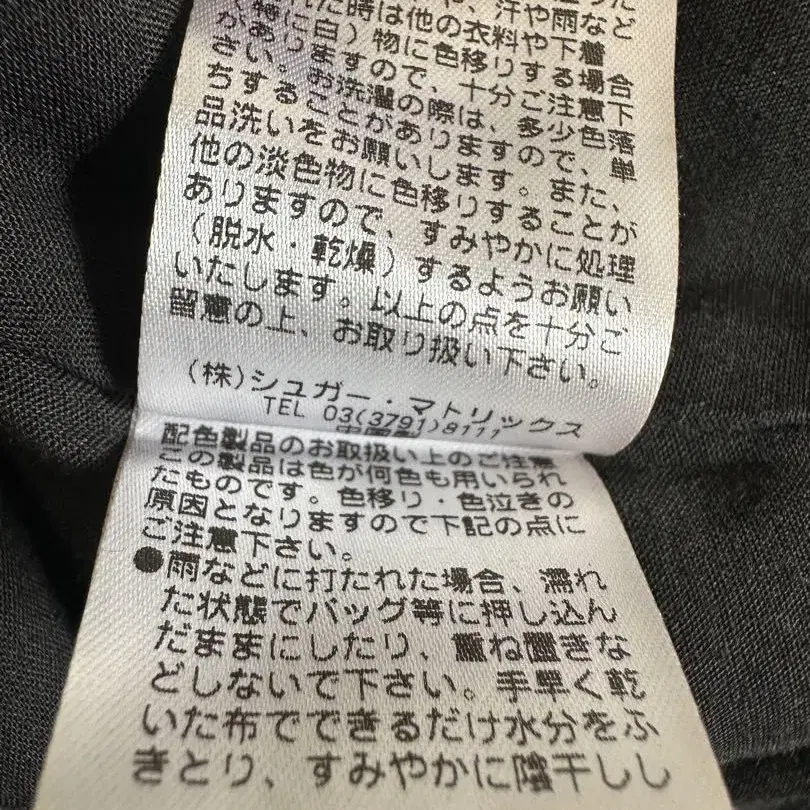 や、汗や雨など
れた時は他の衣料や下着
(特に白)物に色移りする場合
がありますので、十分ご注意下
さい。お洗濯の際は、多少色落
ちすることがありますので、単
品洗いをお願いします。また、
他の淡色物に色移りすることが
ありますので、すみやかに処理
(脱水・乾燥)するようお願い
いたします。以上の点を十分ご
留意の上、お取り扱い下さい。
(株)シュガー・マトリックス
TEL 03(3791)8111
配色製品のお取扱い上のご注意
この製品は色が何色も用いられ
たものです。色移り・色泣きの
原因となりますので下記の点に
ご注意下さい。
●雨などに打たれた場合、濡れ
た状態でバッグ等に押し込ん
だままにしたり、重ね置きな
どしないで下さい。手早く乾
いた布でできるだけ水分をふ
きとり、すみやかに陰干しし